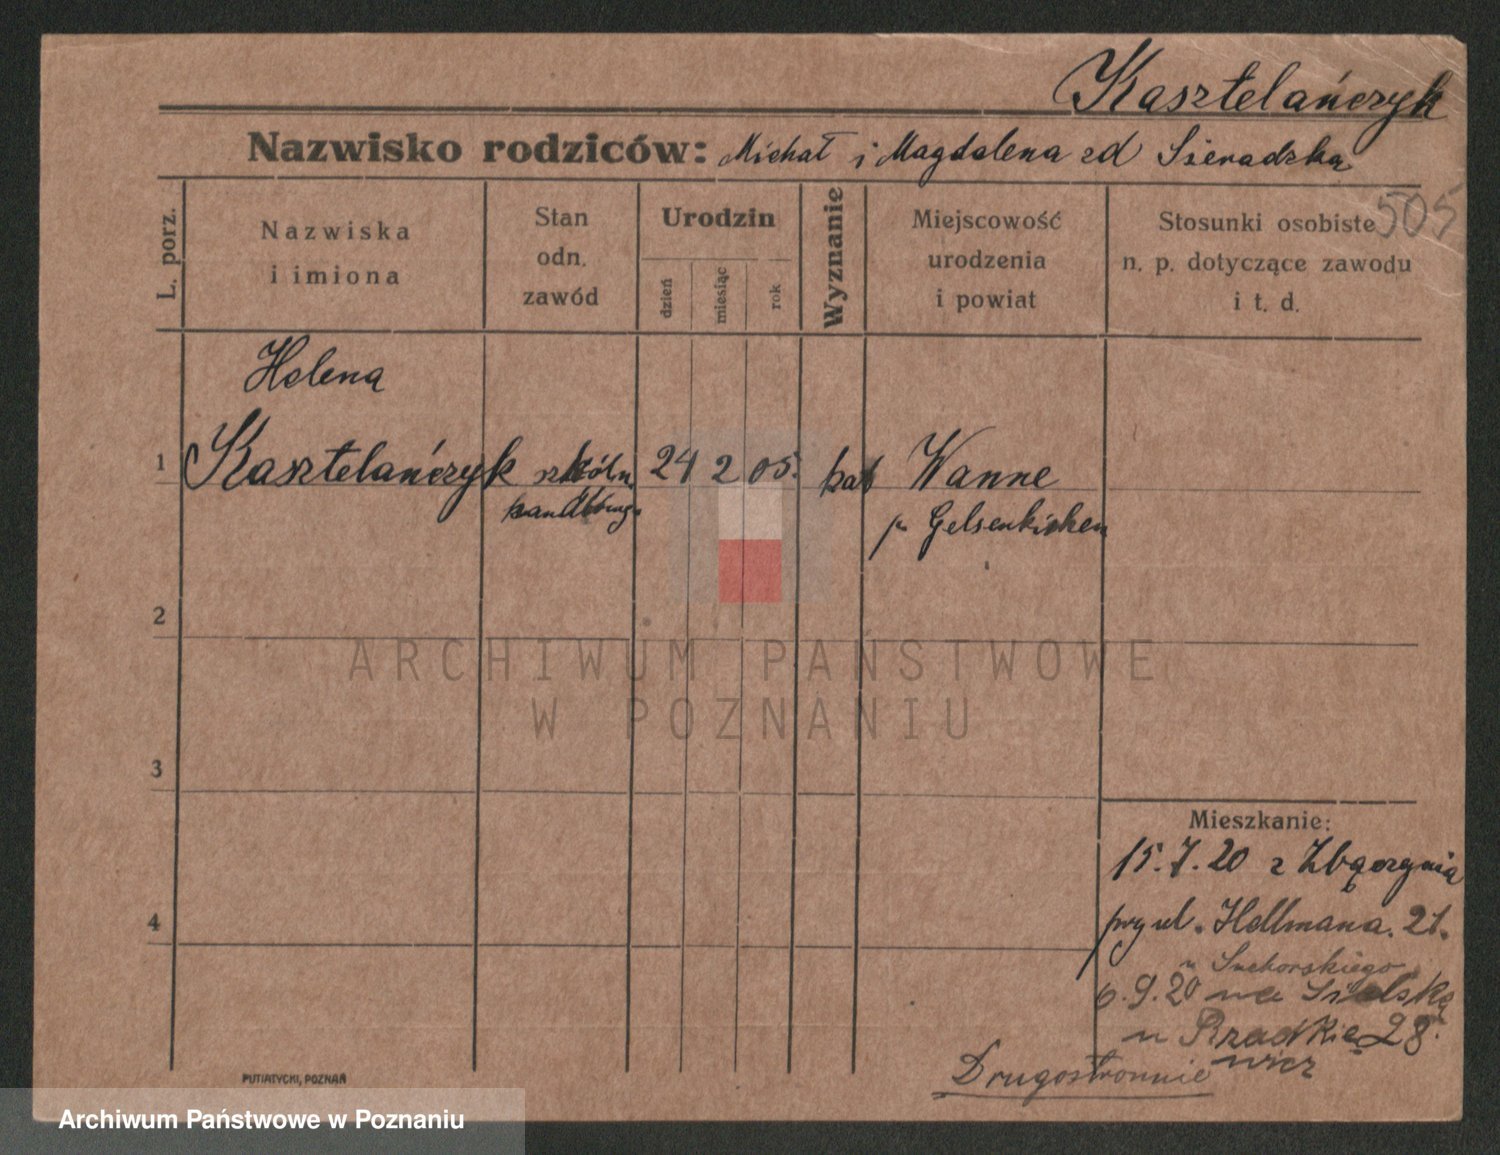 Kasztelańczyk
Nazwisko rodziców: Michał i Magdalena zd Sieradzka
505
L. porz.
Nazwiska
i imiona
Stan
odn.
zawód
Urodzin
dzień
miesiąc
rok
Wyznanie
Miejscowość
urodzenia
i powiat
Stosunki osobiste
n. p. dotyczące zawodu
i t. d.
Helena
1 Kasztelańczyk 24 2 05. kat Wanne
p. Gelsenkirchen
2
ARCHIWUM PAŃSTWOWE
W POZNANIU
3
Mieszkanie:
15.7.20 z Zbąszynia
przy ul. Hellmana. 21.
u Suchorskiego
6.9.20 na Sielską
u Rzadkie 28.
wicz
4
Drugostronnie
PUTIATYCKI, POZNAŃ
Archiwum Państwowe w Poznaniu